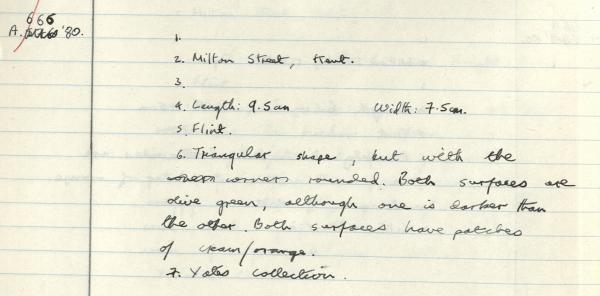 666
A. '80.
1.
2. Milton Street, Kent.
3.
4. Length: 9.5cm Width: 7.5cm.
5. Flint.
6. Triangular shape, but with the
corners rounded. Both surfaces are
olive green, although one is darker than
the other. Both surfaces have patches
of cream/orange.
7. Yates collection.